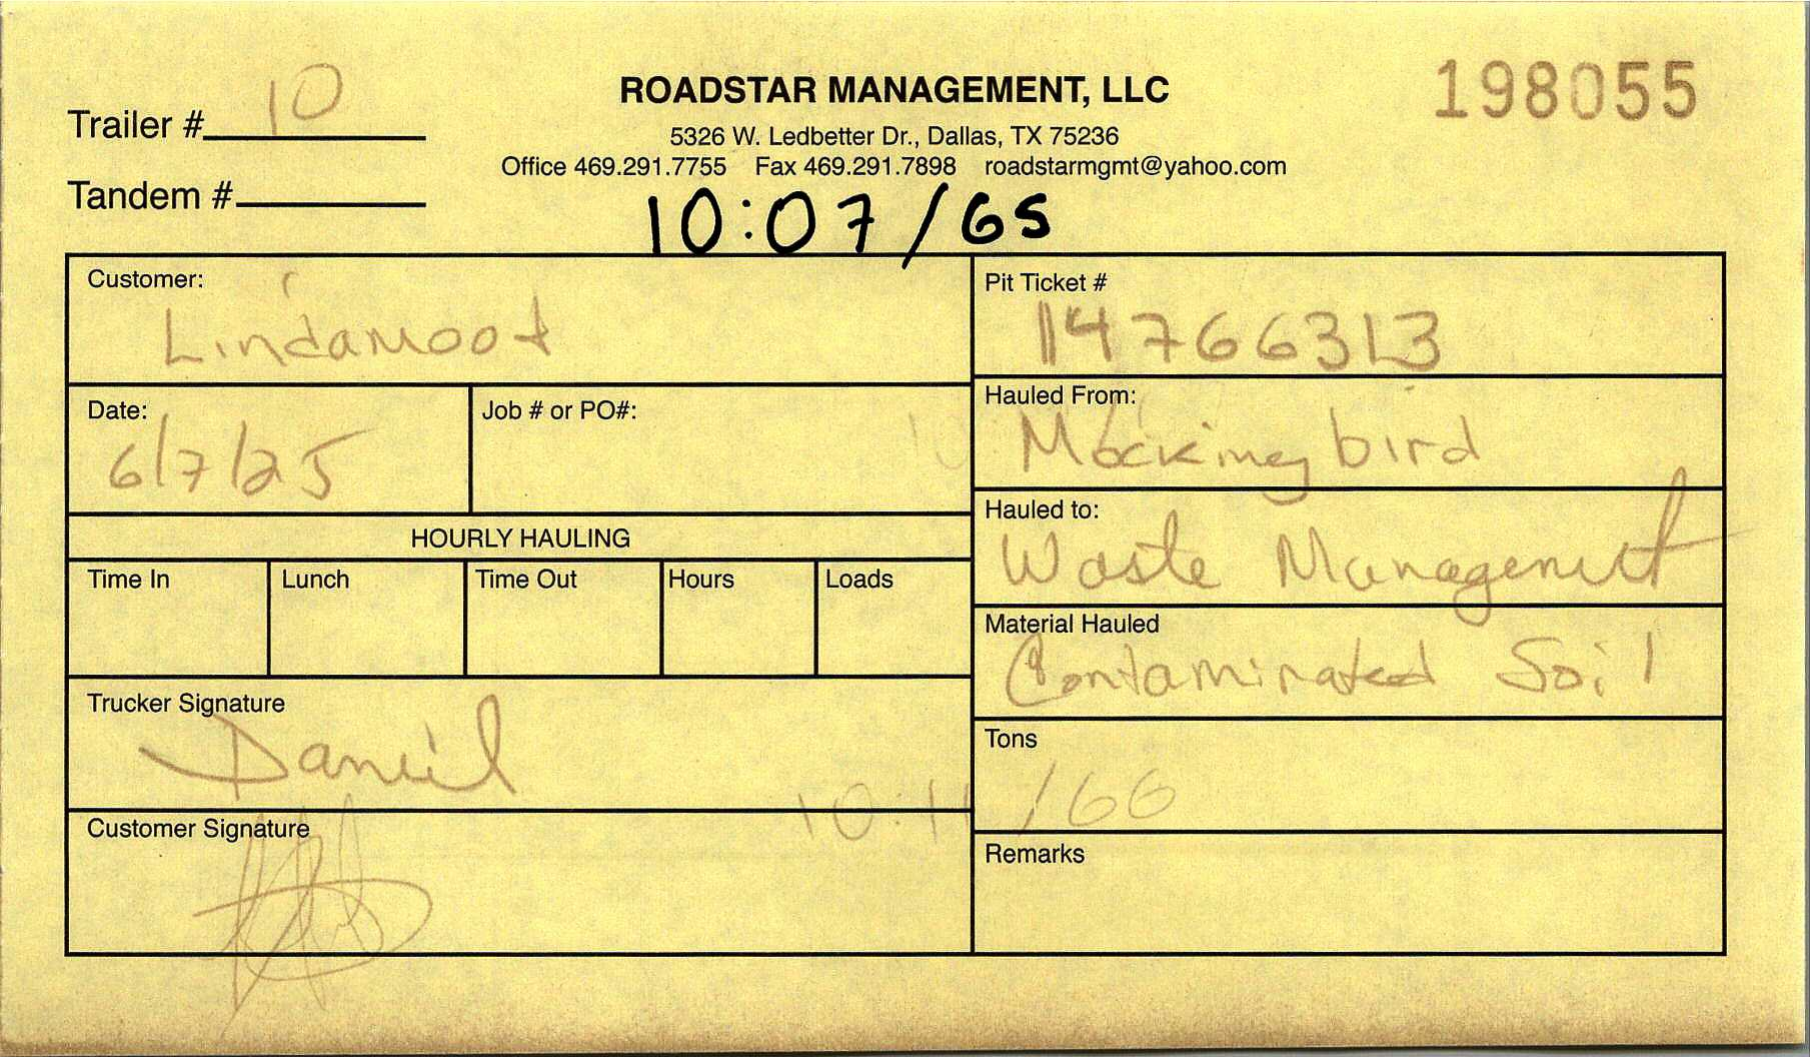 Trailer # 10
ROADSTAR MANAGEMENT, LLC
198055
5326 W. Ledbetter Dr., Dallas, TX 75236
Office 469.291.7755 Fax 469.291.7898 roadstarmgmt@yahoo.com
Tandem #
10:07/65
Customer:
Lindamood
Pit Ticket #
14766313
Date:
6/7/25
Job # or PO#:
Hauled From:
Mockingbird
Hauled to:
Waste Management
HOURLY HAULING
Time In
Lunch
Time Out
Hours
Loads
Material Hauled
Contaminated Soil
Trucker Signature
Daniel
Tons
/66
Customer Signature
Remarks